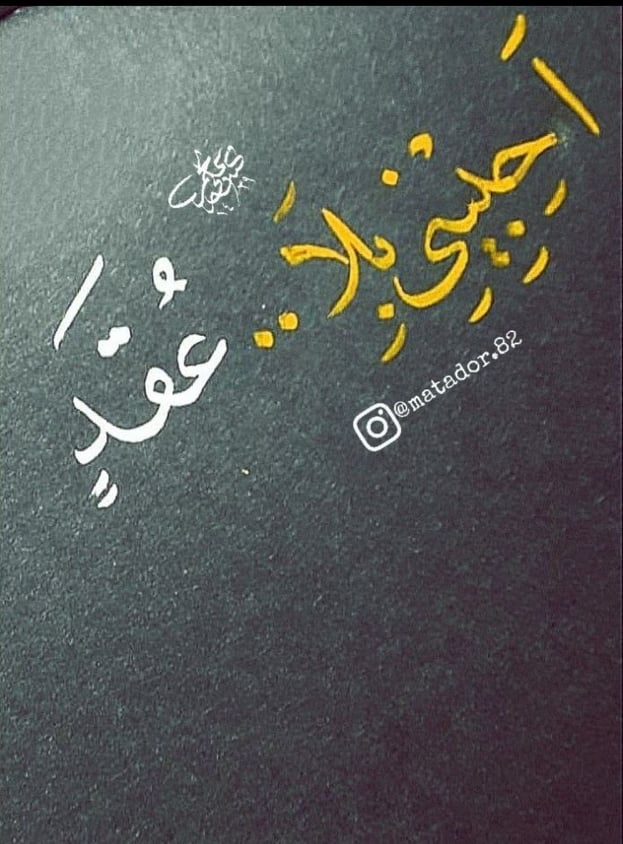 اَحِبِينِي بِلاَ.. عُقَدٍ
@matador.82